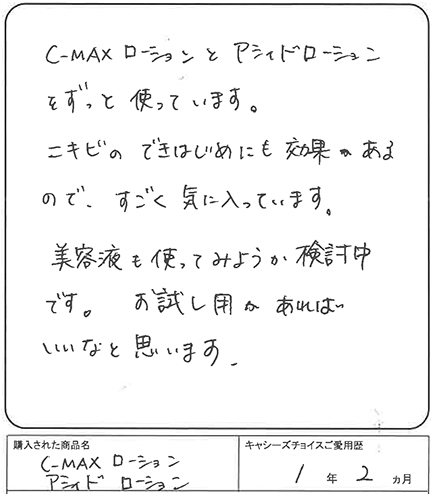 C-MAX ローションと アシィドローション
をずっと 使っています。
ニキビの できはじめにも 効果がある
ので、すごく 気に入っています。
美容液も使ってみようか検討中
です。 お試し用があれば
いいなと思います.
購入された商品名
C-MAX ローション
アシィド ローション
キャシーズチョイスご愛用歴
1 年 2 ヵ月